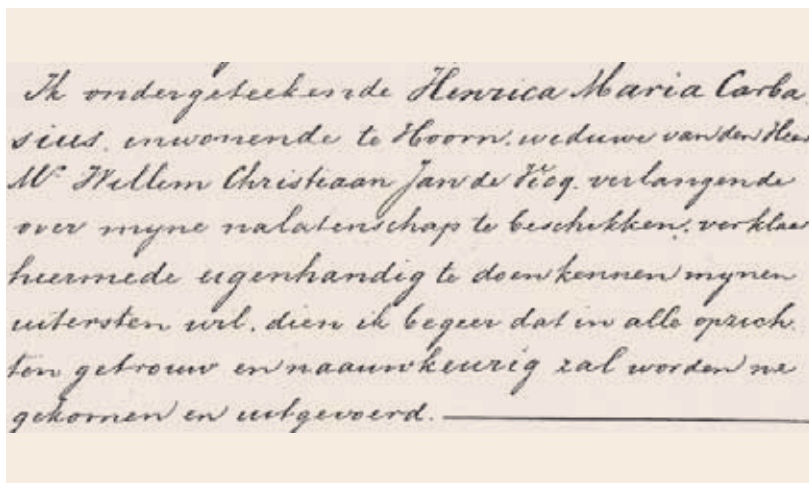 Ik ondergeteekende Henrica Maria Carba
sius, inwonende te Hoorn, weduwe van den Heer
Mr Willem Christiaan Jan de Vicq, verlangende
over myne nalatenschap te beschikken, verklaar
heermede eigenhandig te doen kennen mynen
uitersten wil, dien ik begeer dat in alle opzich
ten getrouw en naauwkeurig zal worden na
gekomen en uitgevoerd.